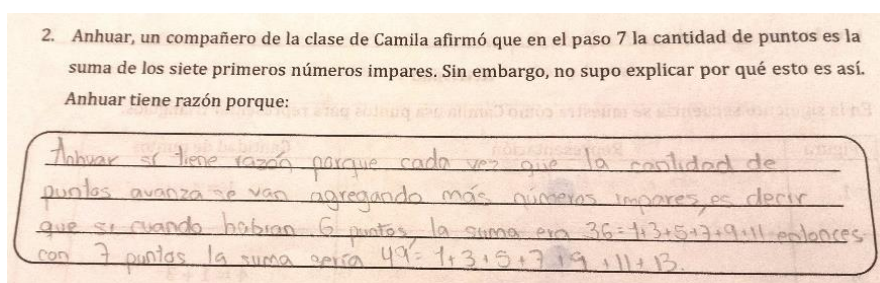 2. Anhuar, un compañero de la clase de Camila afirmó que en el paso 7 la cantidad de puntos es la
suma de los siete primeros números impares. Sin embargo, no supo explicar por qué esto es así.
Anhuar tiene razón porque:
Anhuar sí tiene razón porque cada vez que la cantidad de
puntos avanza se van agregando más números impares, es decir
que si cuando habian 6 puntos la suma era 36=1+3+5+7+9+11 entonces
con 7 puntos la suma sería 49=1+3+5+7+9+11+13.